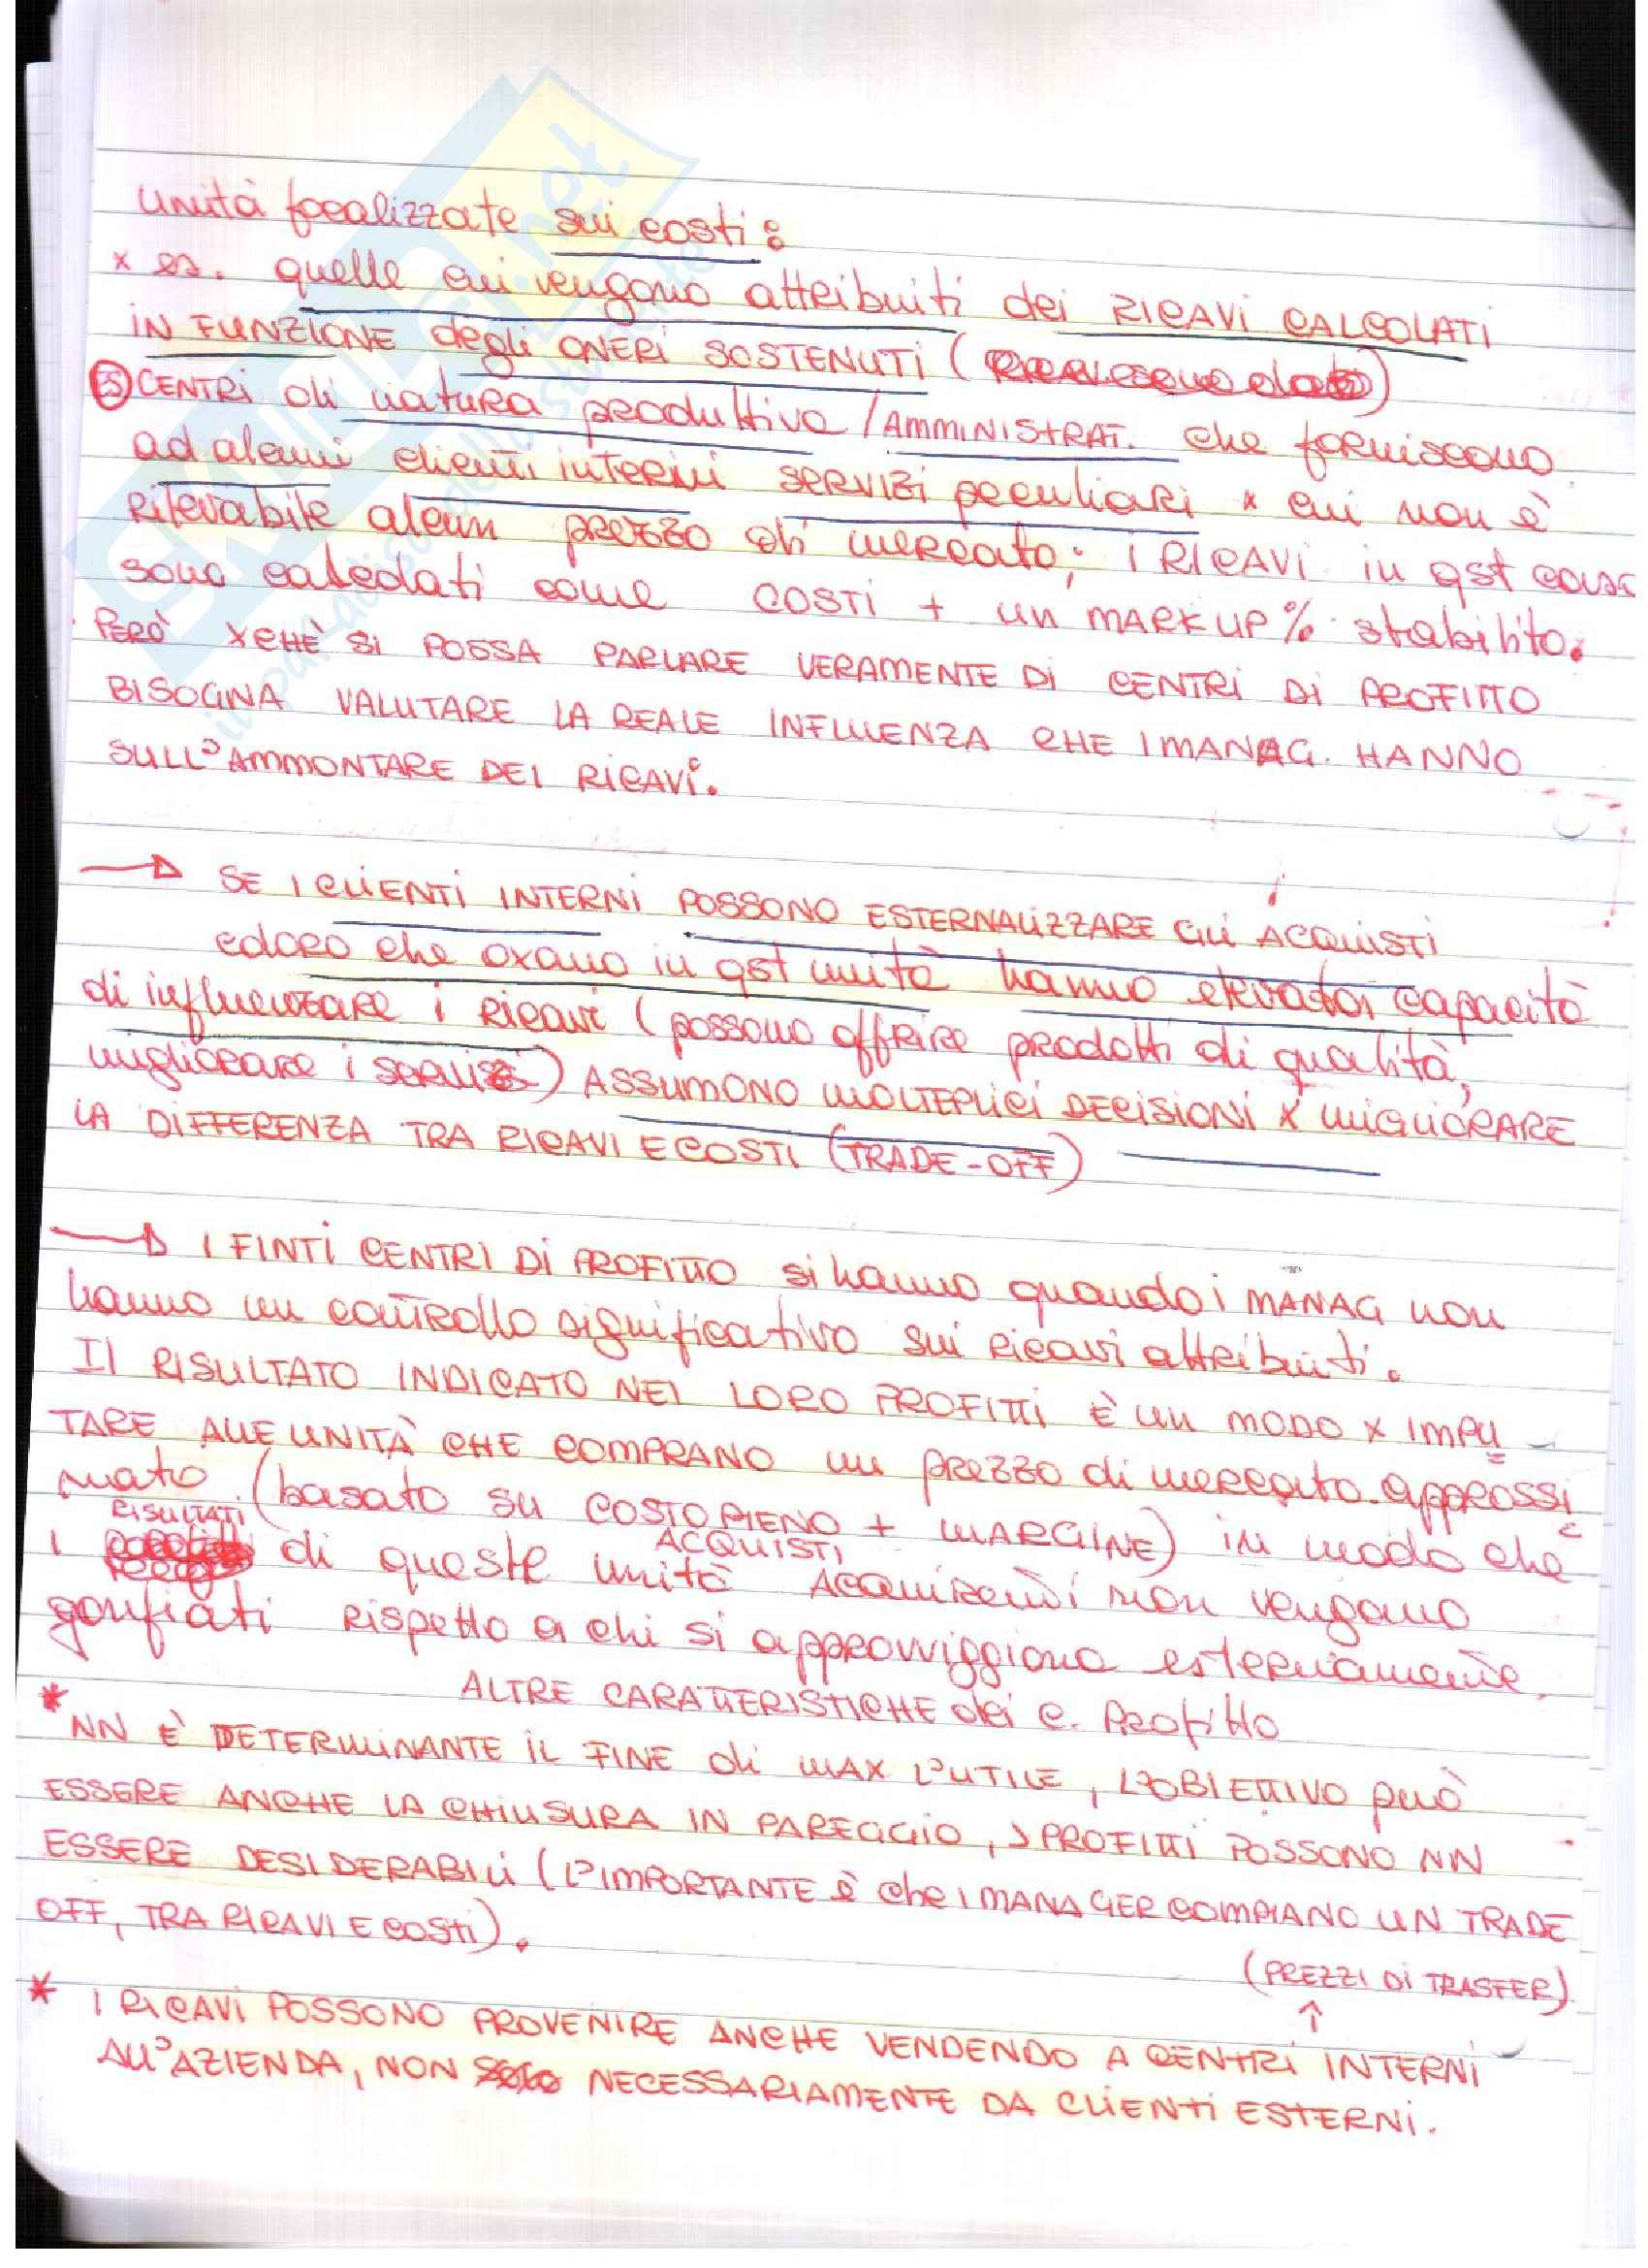 unità focalizzate sui costi:
x es. quelle cui vengono attribuiti dei RICAVI CALCOLATI
IN FUNZIONE degli ONERI SOSTENUTI (
ES CENTRI di natura produttiva / AMMINISTRAT. che forniscono
ad alcuni clienti interni servizi peculiari x cui non è
rilevabile alcun prezzo di mercato; i RICAVI in qst caso
sono calcolati come COSTI + un MARK UP % stabilito.
PERÒ XCHÈ SI POSSA PARLARE VERAMENTE DI CENTRI DI PROFITTO
BISOGNA VALUTARE LA REALE INFLUENZA CHE I MANAG. HANNO
SULL'AMMONTARE DEI RICAVI.
→ SE I CLIENTI INTERNI POSSONO ESTERNALIZZARE GLI ACQUISTI
coloro che oxano in qst unità hanno elevata capacità
di influenzare i ricavi (possono offrire prodotti di qualità,
migliorare i servizi) ASSUMONO MOLTEPLICI DECISIONI X MIGLIORARE
LA DIFFERENZA TRA RICAVI E COSTI (TRADE-OFF)
→ I FINTI CENTRI DI PROFITTO si hanno quando i MANAG non
hanno un controllo significativo sui ricavi attribuiti.
Il RISULTATO INDICATO NEI LORO PROFITTI È UN MODO X IMPU
TARE ALLE UNITÀ CHE COMPRANO un prezzo di mercato approssi
mato (basato su COSTO PIENO + MARGINE) in modo che
i RISULTATI di queste unità ACQUISTI acquirenti non vengano
gonfiati rispetto a chi si approvviggiona esternamente.
ALTRE CARATTERISTICHE dei c. Profitto
* NN È DETERMINANTE IL FINE di MAX L'UTILE, L'OBIETTIVO può
ESSERE ANCHE LA CHIUSURA IN PAREGGIO, I PROFITTI POSSONO NN
ESSERE DESIDERABILI (L'IMPORTANTE è che i MANAGER COMPIANO UN TRADE
OFF, TRA RICAVI E COSTI).
(PREZZI DI TRASFER)
↑
* I RICAVI POSSONO PROVENIRE ANCHE VENDENDO A CENTRI INTERNI
ALL'AZIENDA, NON NECESSARIAMENTE DA CLIENTI ESTERNI.